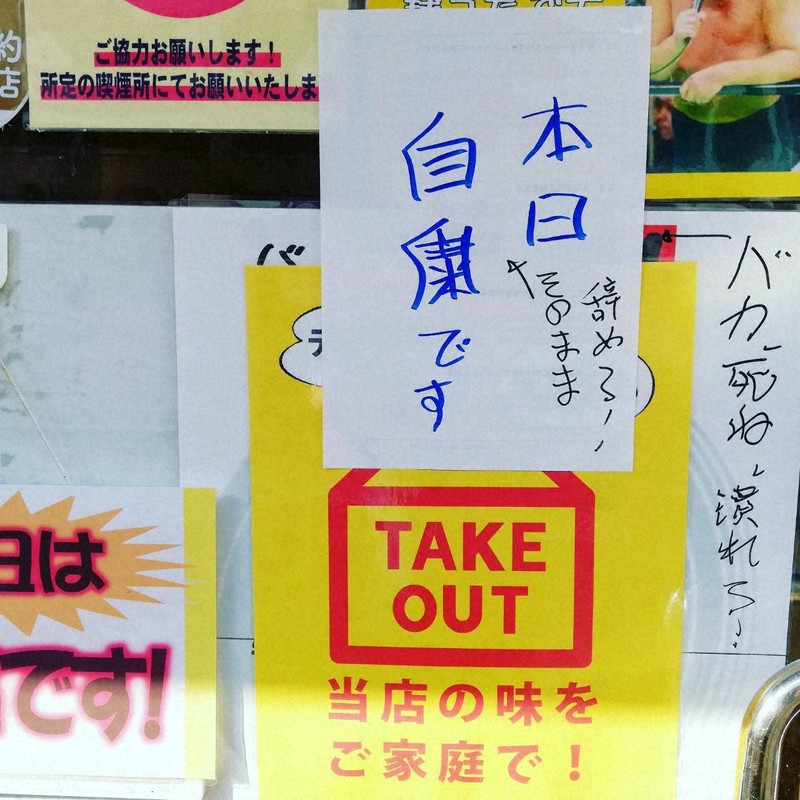 ご協力お願いします!
所定の喫煙所にてお願いいたしま
約
店
本日
自粛です
そのまま
辞めろ!
バカ、死ね、潰れろ!
バ
テ
TAKE
OUT
当店の味を
ご家庭で!
日は
です!